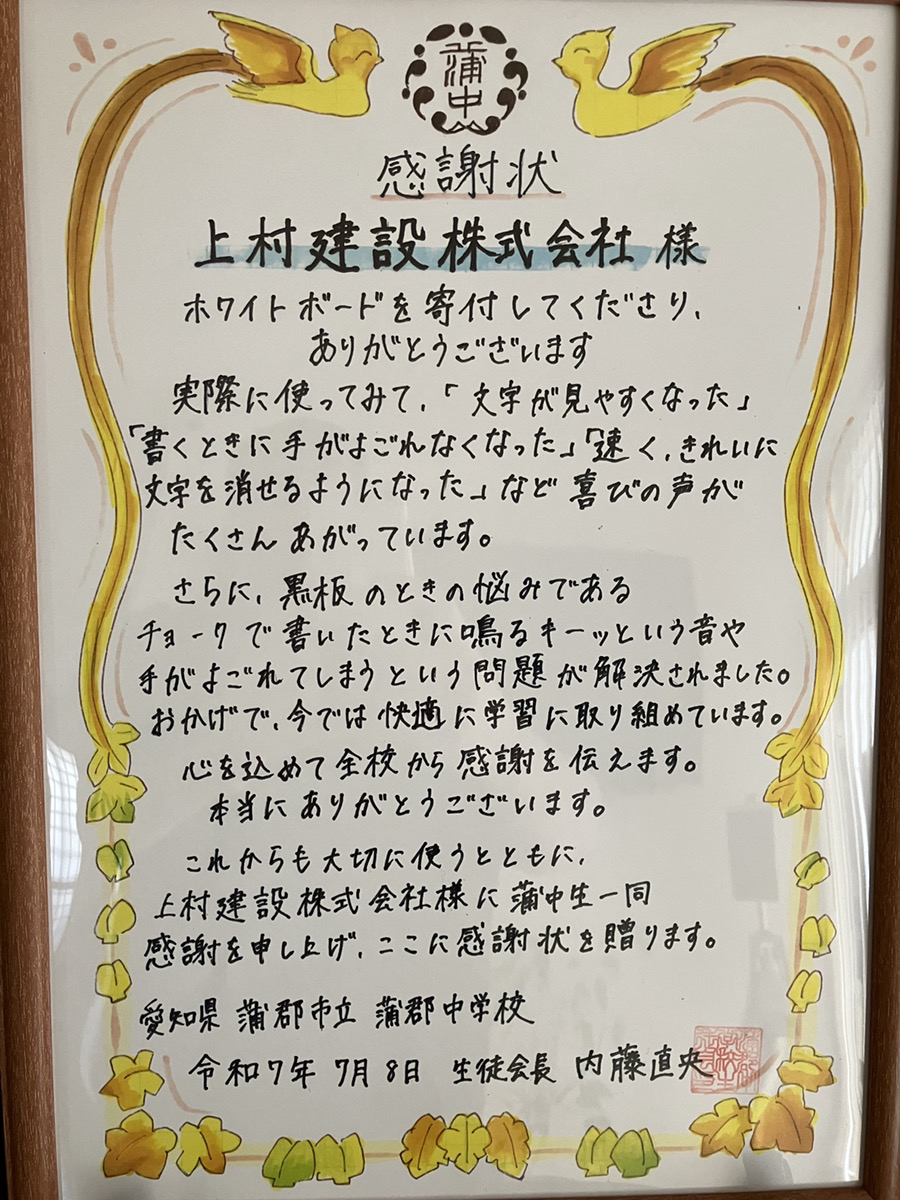 蒲中
感謝状
上村建設株式会社 様
ホワイトボードを寄付してくださり、
ありがとうございます
実際に使ってみて、「文字が見やすくなった」
「書くときに手がよごれなくなった」「速く、きれいに
文字を消せるようになった」など喜びの声が
たくさんあがっています。
さらに、黒板のときの悩みである
チョークで書いたときに鳴るキーッという音や
手がよごれてしまうという問題が解決されました。
おかげで、今では快適に学習に取り組めています。
心を込めて全校から感謝を伝えます。
本当にありがとうございます。
これからも大切に使うとともに、
上村建設株式会社様に蒲中生一同
感謝を申し上げ、ここに感謝状を贈ります。
愛知県 蒲郡市立 蒲郡中学校
令和7年 7月 8日 生徒会長 内藤直央